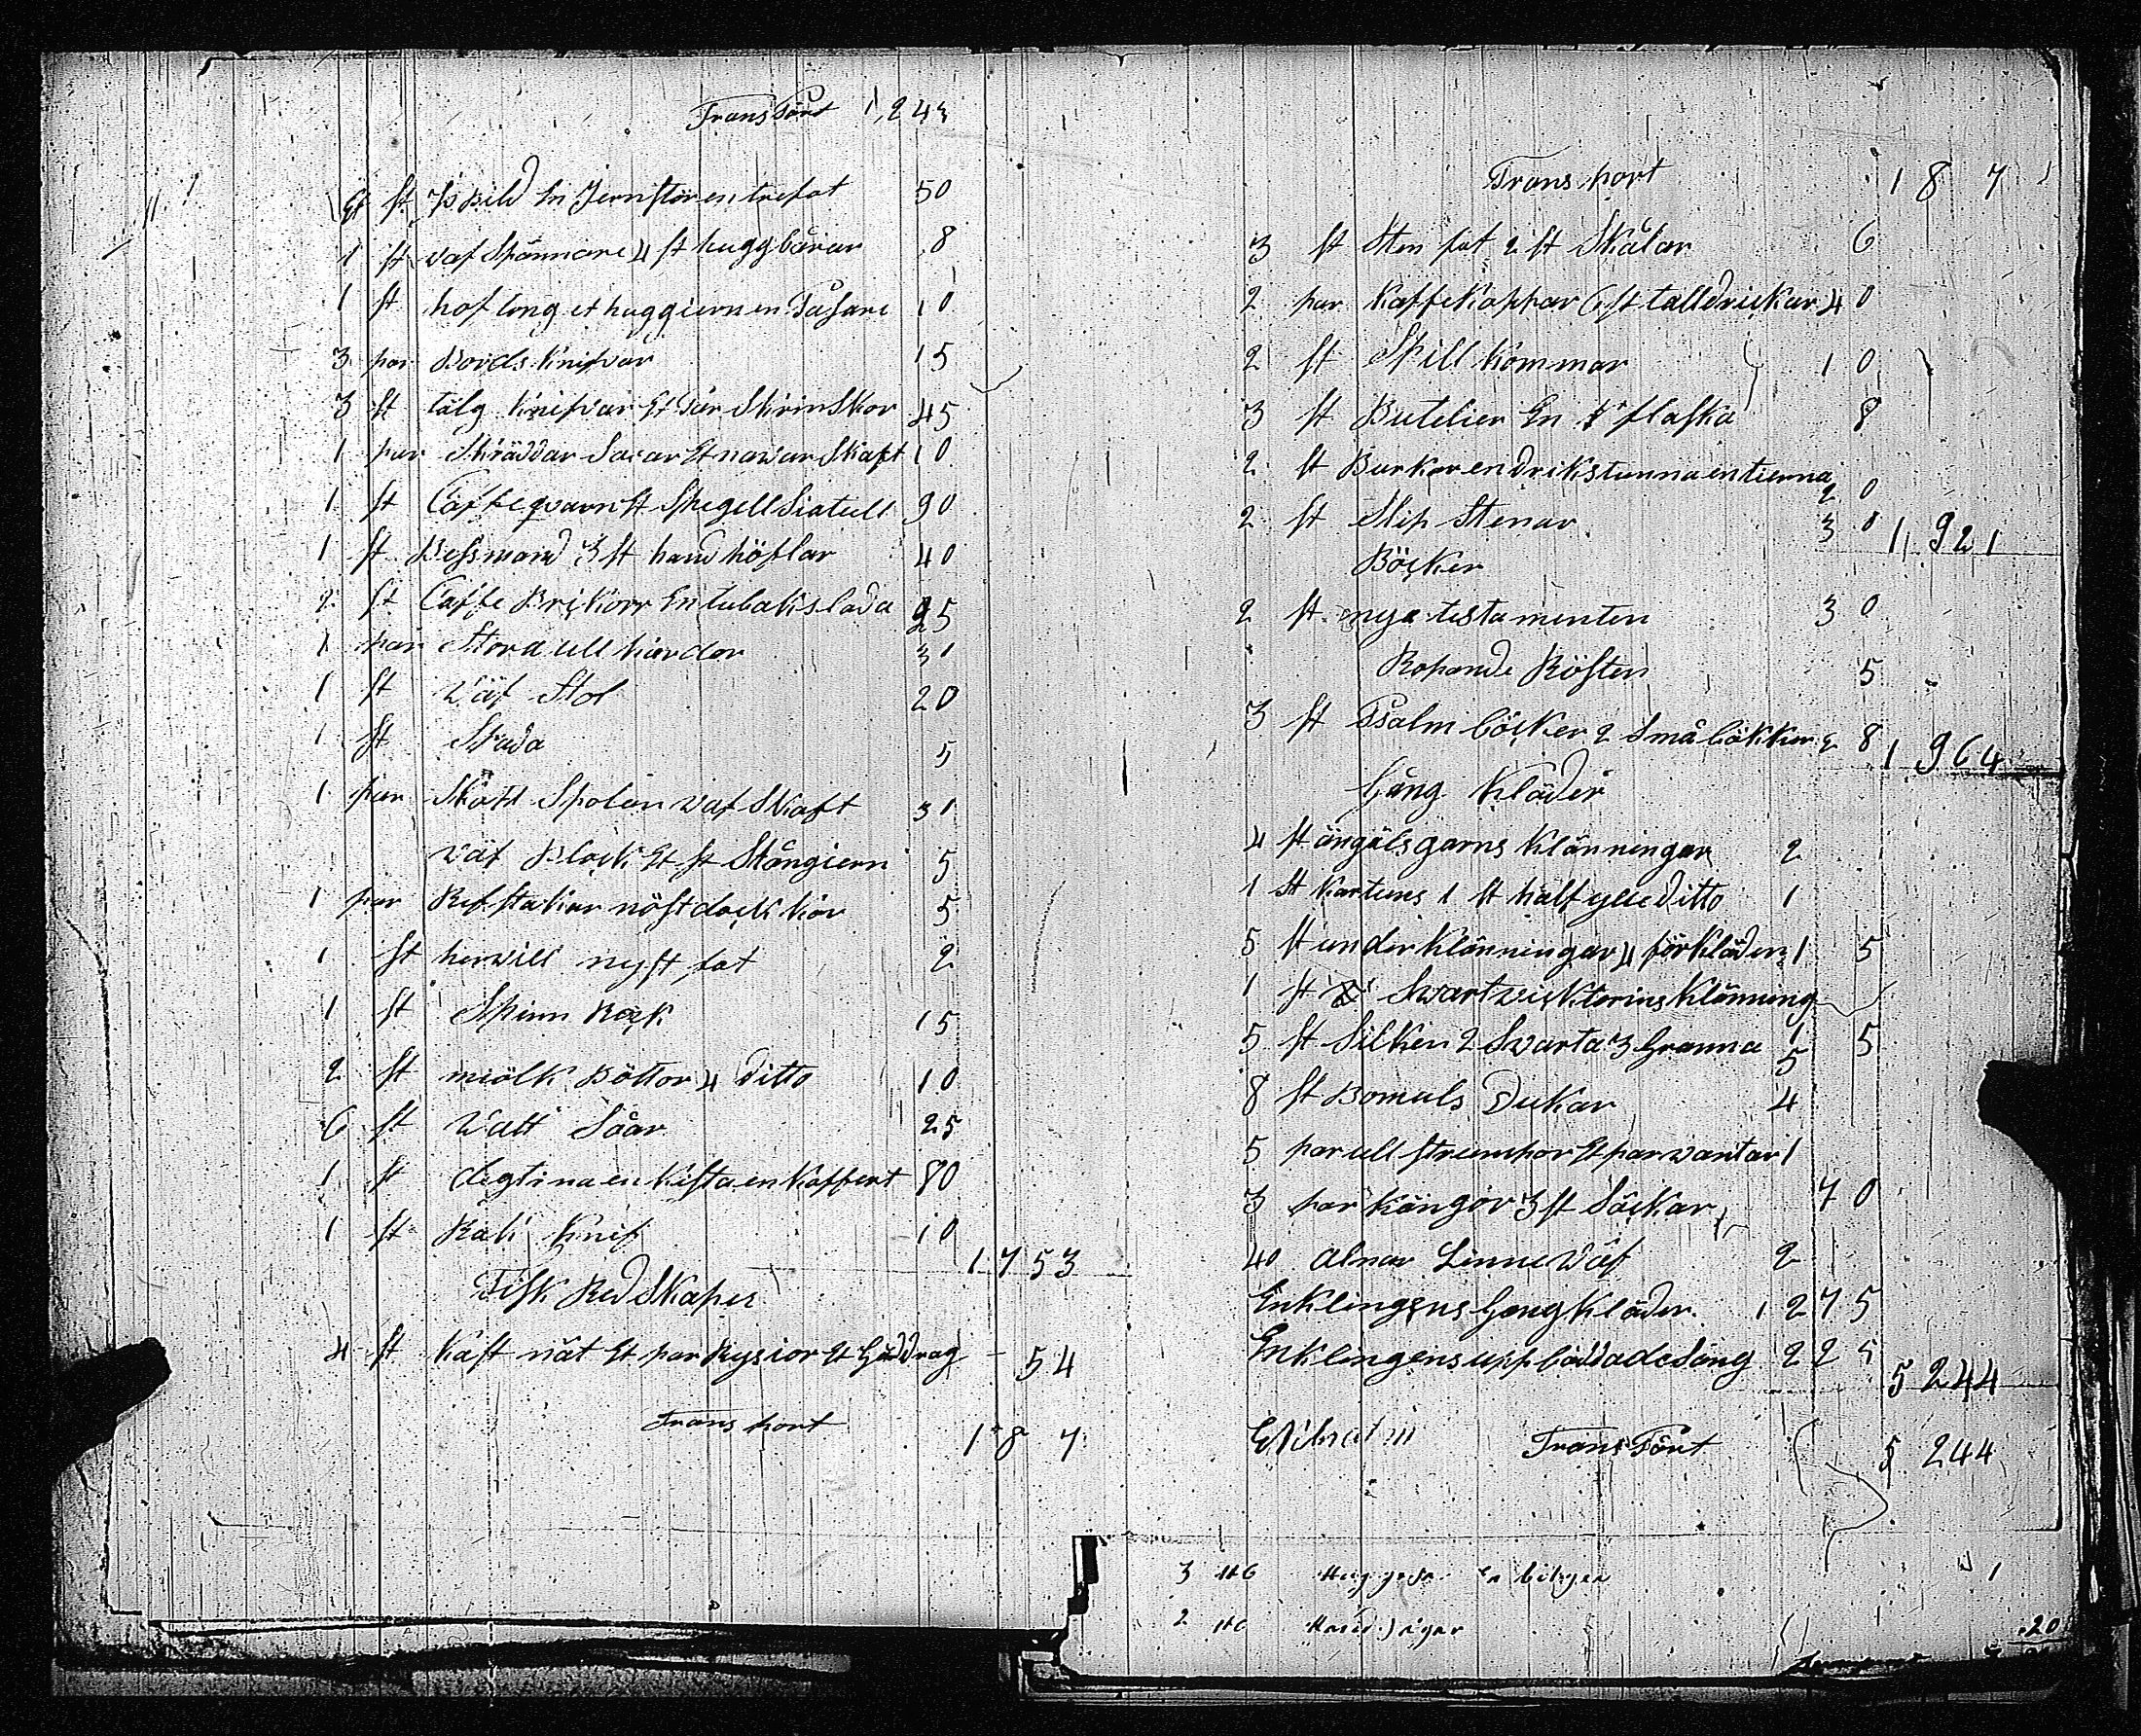 Transport 1,243
Et st Isbild En Jernstör en trefot 50
1 st vaf Spännare 4 st huggbårar 8
1 st hoftong et huggiern en Pasare 10
3 par Bords Knifvar 15
3 st tälg Knifvar Et Par Skrinskor 45
1 par Skräddar Saxar Et navar Skaft 10
1 st Caffeqvarn st Spegell Siatull 90
1 st Bessmand 3 st hand höflar 40
2 st Caffe Brickorr En tubakslada 25
1 par Stora ull kardor 31
1 st Väf Stol 20
1 st Skada 5
1 par Skått Spolar vaf Skaft 31
Väf Block Et st Stångiern 5
1 par Refstakar nöstdock kor 5
1 st hervill nyst fot 2
1 st Spinn Rock 15
2 st miölk Böttor 4 Ditto 10
6 st Vatt Såar 25
1 st degtina en Kista en Koffert 80
1 st Rak Knif 10
1753
Fisk RedSkaper
4 st Kast nät Et par Rysior Et Gäddrag 54
Transport 18 7
Transport 18 7
3 st Sten fat 2 st Skålar 6
2 par Kaffe Koppar 6 st talldrickar 40
2 st Spill Kommar 10
3 st Butelier En flaska 8
2 st Burkar en Drikstunna en tierna 20
2 st Slip Stenar 30 1,921
Böcker
2 st nya testamenten 30
Ropande Rösten 5
3 st Psalm böcker 2 Små bökker 8 1964
Gång Kläder
4 st ängälsgarns Klänningar 2
1 st Kartuns 1 st half ylle Ditto 1
5 st under Klänningar 4 förKläder 1 5
1 st Svart vicktorins Klänning
5 st Silken 2 Svarta 3 Granna 1 5
5
8 st Bomuls Dukar 4
5 par ull strumpor Et par vantar 1
3 par Kängor 3 st Säckar 70
40 alnar Linne Väf 2
Enklingens Gång Kläder 1275
Enklingens uppbäddade Säng 225 5244
Transport 5 244
3 st En 1
2 st Hand Sågar 20